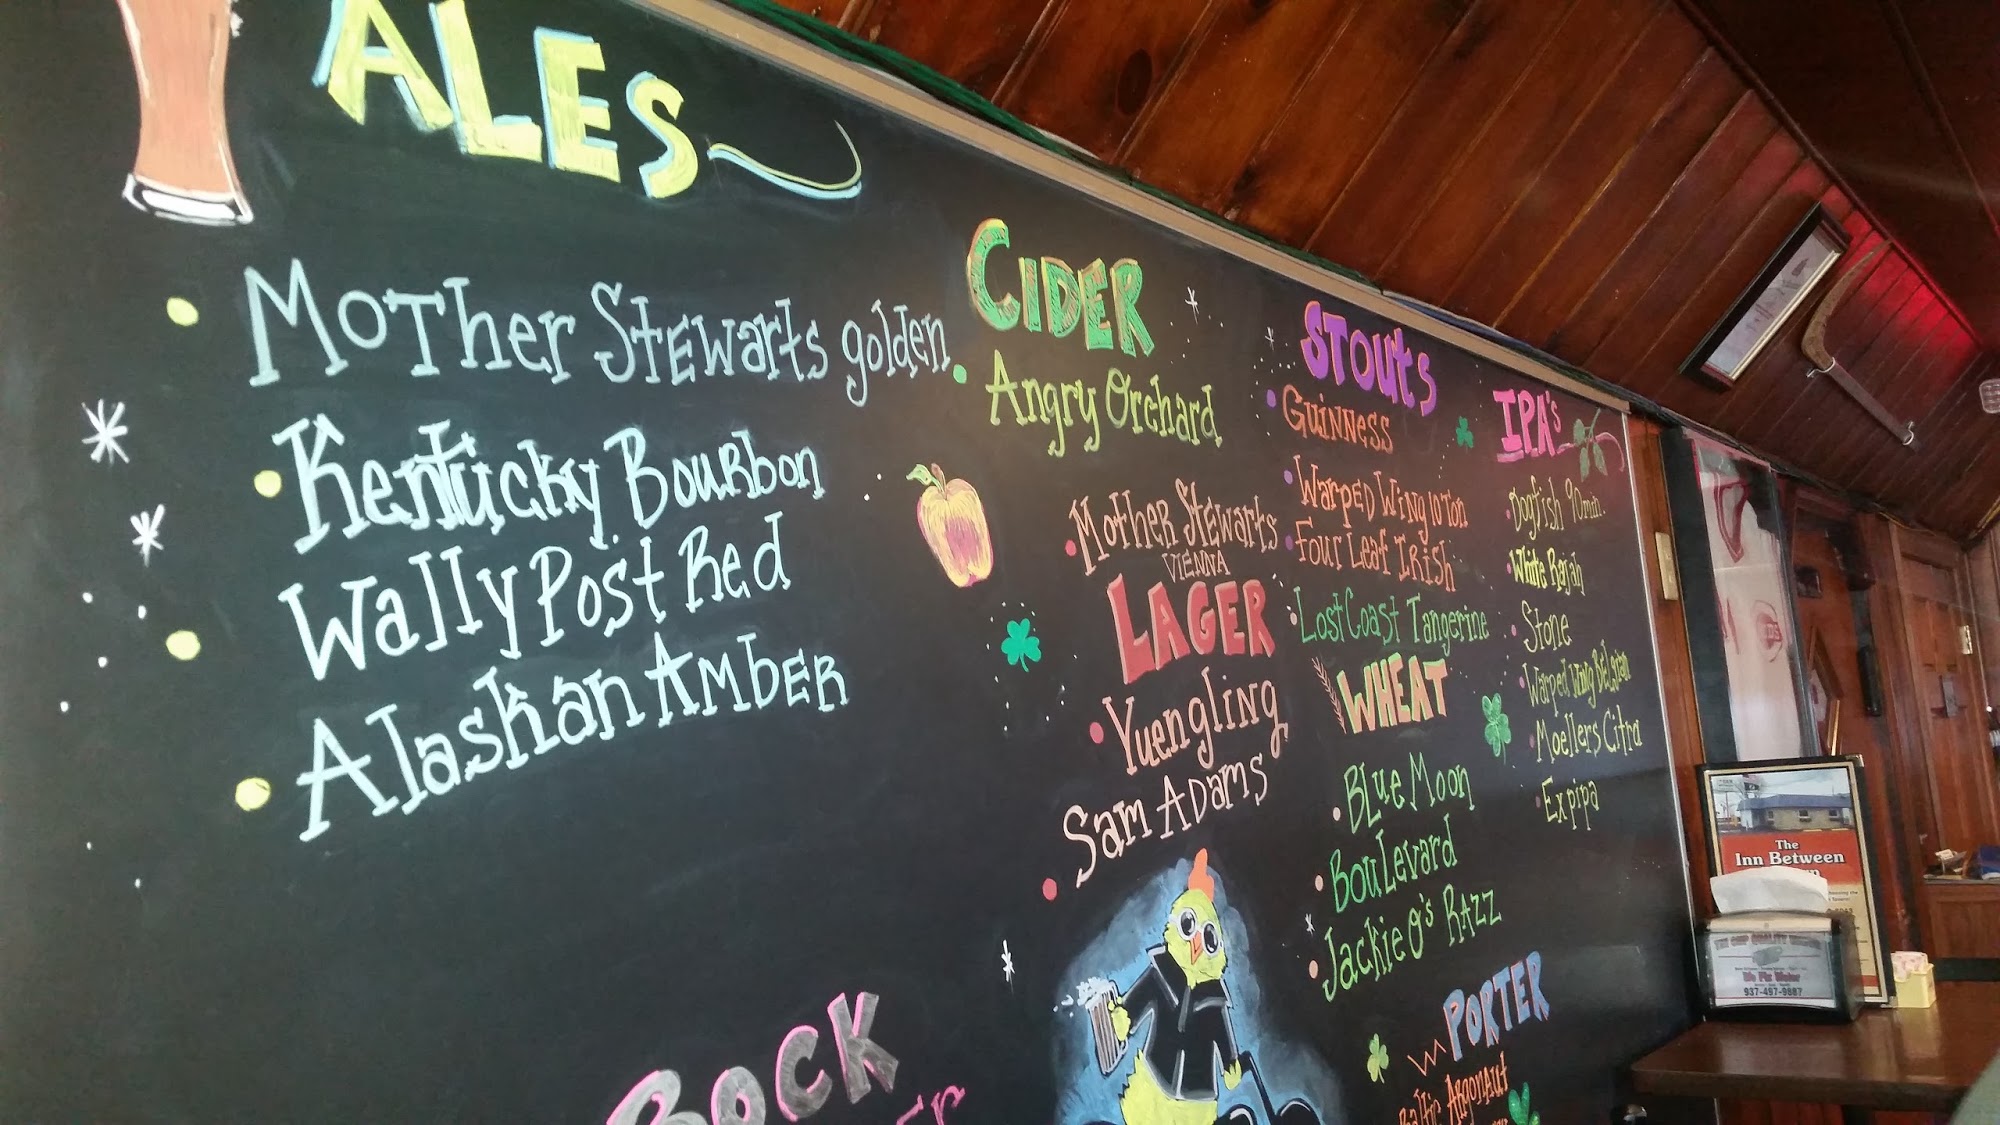 ALES
Mother Stewarts golden
Kentucky Bourbon
Wally Post Red
Alaskan Amber
BOCK
CIDER
Angry Orchard
Mother Stewarts
VIENNA
LAGER
Yuengling
Sam Adams
STOUTS
Guinness
Warped Wing 10 Ton
Four Leaf Irish
Lost Coast Tangerine
WHEAT
Blue Moon
Boulevard
Jackie O's Razz
PORTER
Baltic Argonaut
IPA's
Dogfish 90 min.
White Rajah
Stone
Warped Wing Belgian
Moellers Citra
Expipa
The
Inn Between
We Fix Water
937-497-9887